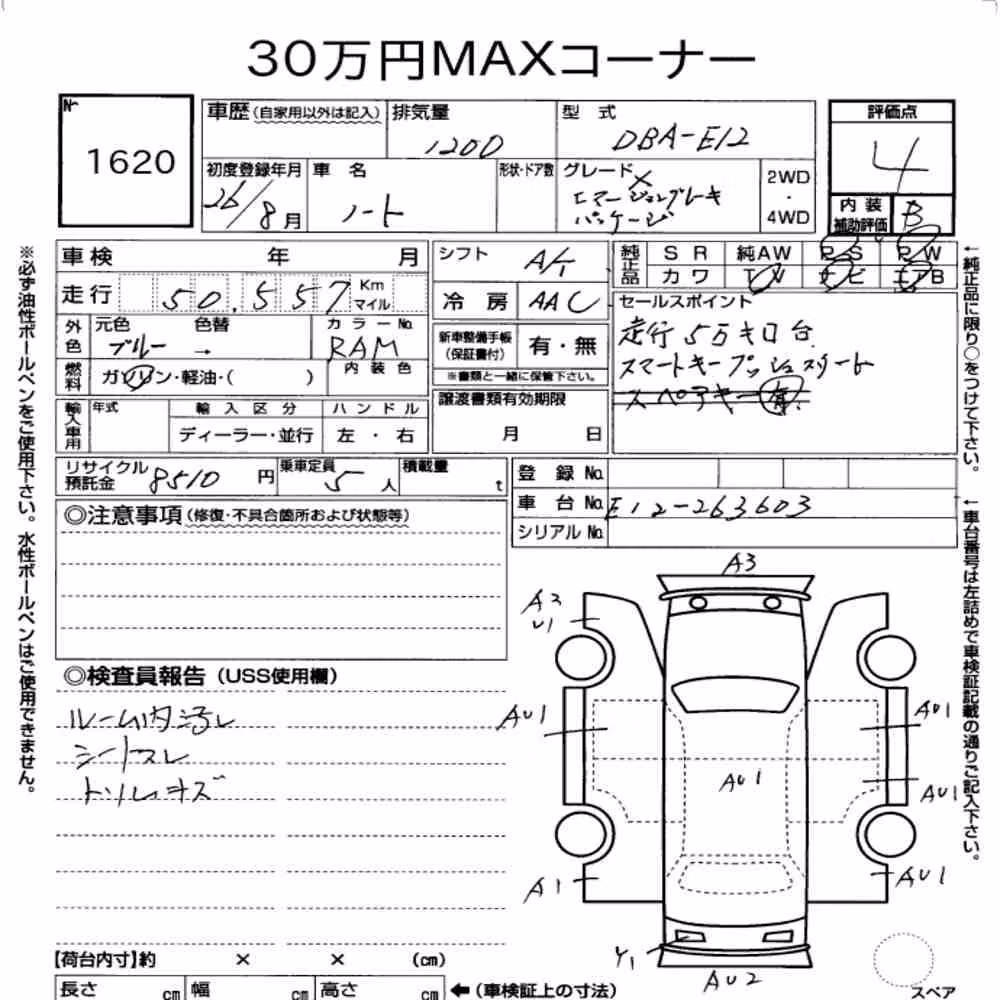 30万円MAXコーナー
№
1620
車歴(自家用以外は記入)
排気量
1200
型 式
DBA-E12
評価点
4
初度登録年月
26/8月
車 名
ノート
形状・ドア数
グレード
X
エマージェンシーブレーキ
パッケージ
2WD
・
4WD
内 装
補助評価
B
車検 年 月
シフト
A/T
純正品
S R 純AW P S P W
カ ワ T V ナ ビ エアB
走行 50,557 Km
マイル
冷 房
AAC
セールスポイント
走行5万キロ台
スマートキープッシュスタート
スペアキー有
外色
元色 色替
ブルー →
カラーNo.
RAM
内 装 色
新車整備手帳
(保証書付)
有・無
※書類と一緒に保管下さい。
燃料
ガソリン・軽油・( )
譲渡書類有効期限
月 日
輸入車用
年式
輸 入 区 分
ハ ン ド ル
ディーラー・並行
左 ・ 右
リサイクル
預託金
8510 円
乗車定員
5 人
積載量
t
登 録 No.
車 台 No.
E12-263603
シリアル No.
◎注意事項(修復・不具合箇所および状態等)
◎検査員報告(USS使用欄)
ルーム内汚レ
シートスレ
トリムキズ
A3
A2
U1
AU1
AU1
AU1
AU1
A1
AU1
Y1
AU2
スペア
【荷台内寸】約 × × (cm)
長さ cm 幅 cm 高さ cm
←(車検証上の寸法)
※必ず油性ボールペンをご使用下さい。水性ボールペンはご使用できません。
←純正品に限り○をつけて下さい。
←車台番号は左詰めで車検証記載の通りご記入下さい。